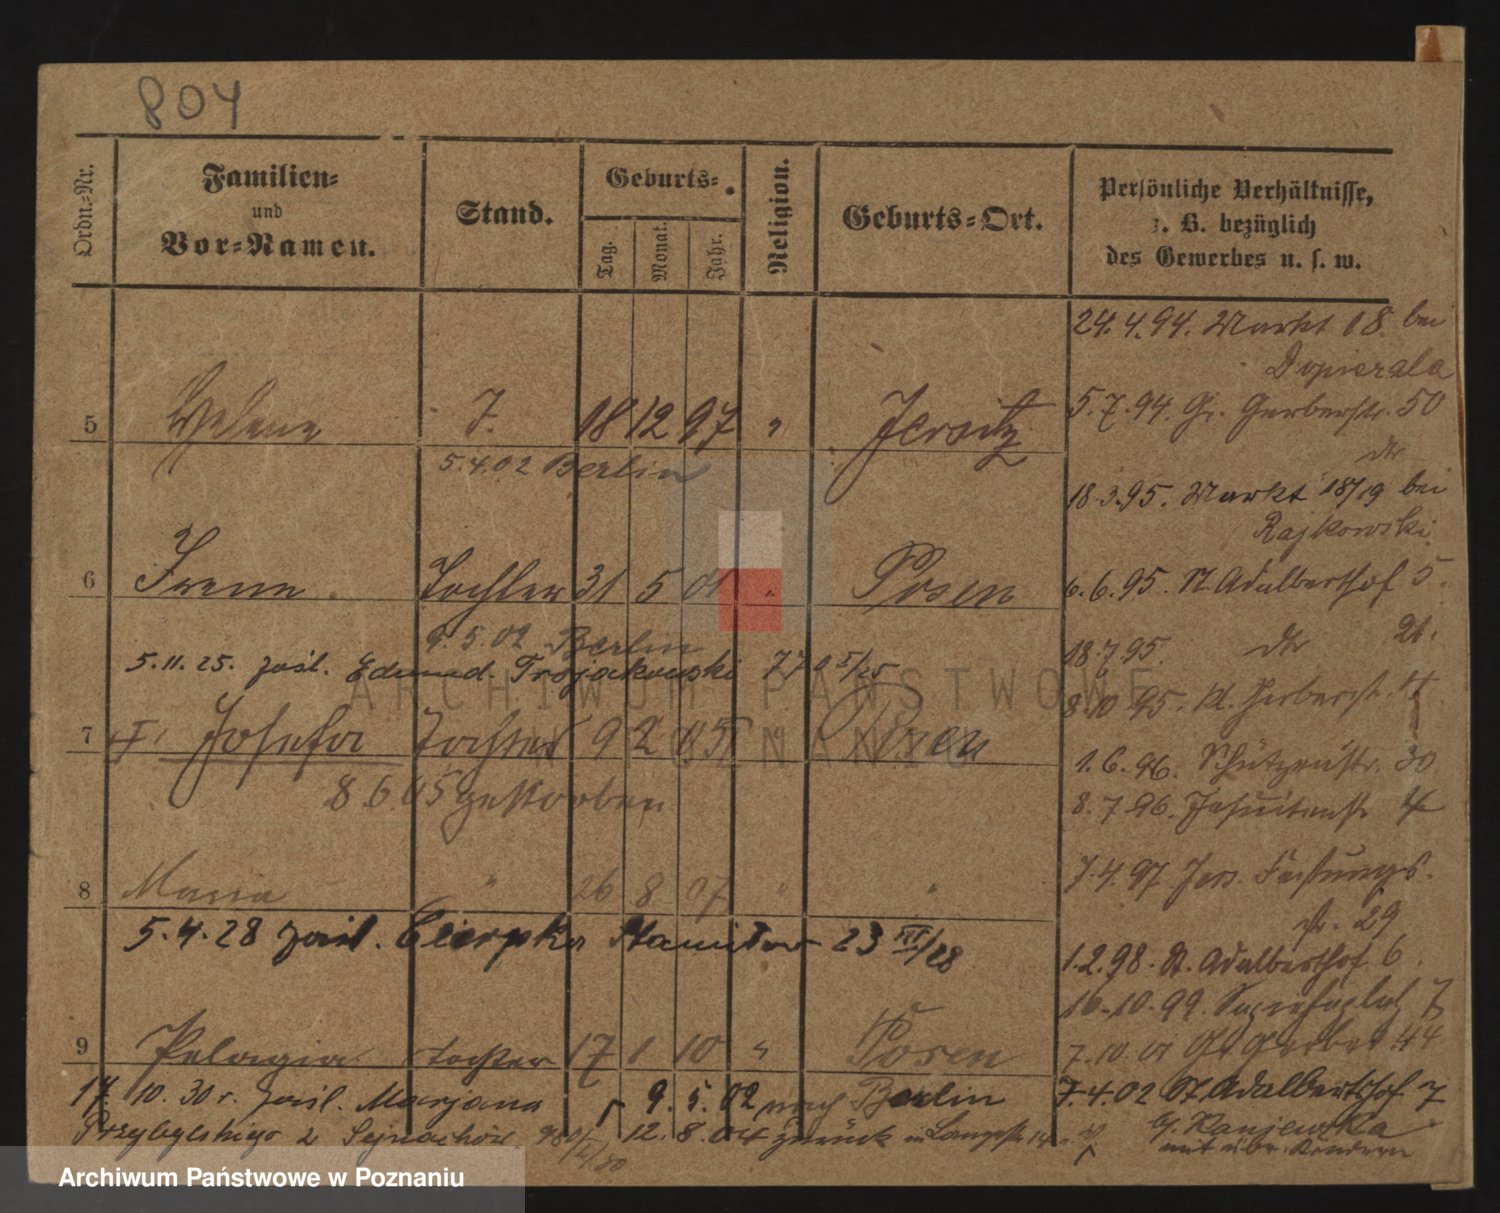 804
Ordn.-Nr.
Familien-
und
Vor-Namen.
Stand.
Geburts-
Tag.
Monat.
Jahr.
Religion.
Geburts-Ort.
Persönliche Verhältnisse,
z. B. bezüglich
des Gewerbes u. s. w.
24.4.94. Markt 18. bei
Dopierala
5 Helene T. 18 12 97 " Jersitz
5.7.94. Gr. Gerberstr. 50
5.4.02 Berlin
18.3.95. Markt 18/19 bei
Rajkowski.
6 Irene. Tochter 31 5 01 " Posen
6.6.95. St. Adalberthof 5.
9.5.02 Berlin
18.7.95. dto 21.
5.11.25. zaśl. Edmund. Trojakowski 770 5/25
8.10.95. Kl. Gerberstr. 4
7 Josefa Tochter 9 2 05 " Posen
1.6.96. Schützenstr. 30
8.6.05 gestorben
8.7.96. Jesuitenstr 4
7.4.97 Jers. Festungs-
str. 29
8 Maria " 26 8 07 " "
5.4.28 zaśl. Cierpka Stanisław 23 III/28
1.2.98. St. Adalberthof 6.
10.10.99. Sapiehaplatz 7
9 Pelagia Tochter 17 1 10 " Posen
7.10.01 Gr Gerber 44
17.10.30 r. zaśl. Marjana
9.5.02 nach Berlin
7.4.02 St Adalberthof 7
Przybylskiego z
12.8.04 zurück in Langestr 14
mit übr. Kindern
ARCHIWUM PAŃSTWOWE
W POZNANIU
Archiwum Państwowe w Poznaniu